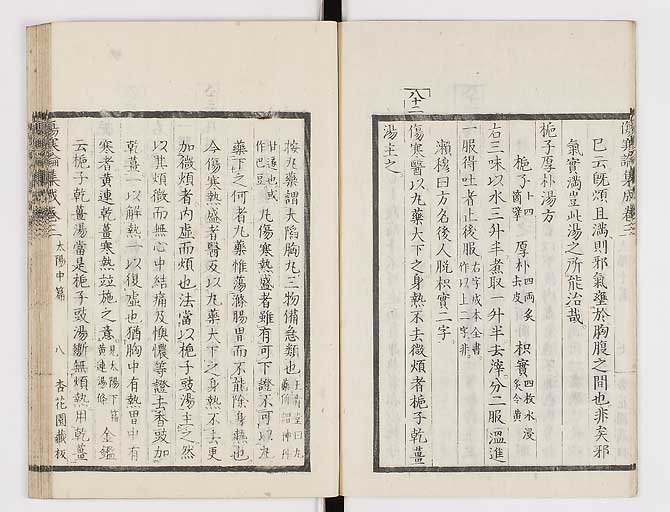 傷寒論集成卷三
已云既煩且滿則邪氣壅於胸腹之間也非矣邪
氣實滿豈此湯之所能治哉
梔子厚朴湯方
梔子十四箇擘 厚朴四兩炙去皮 枳實四枚水浸炙令黃
右三味以水三升半煮取一升半去滓分二服溫進
一服得吐者止後服右字成本全書作以上二字非
瀨穆曰方名後人脫枳實二字
八十二
傷寒醫以丸藥大下之身熱不去微煩者梔子乾薑
湯主之
按丸藥謂大陷胸丸三物備急類也
甘遂也或作巴豆 凡傷寒熱盛者雖有可下證不可以丸
藥下之何者丸藥惟蕩滌腸胃而不能除身熱也
今傷寒熱盛者醫反以丸藥大下之身熱不去更
加微煩者內虛而煩也法當以梔子豉湯主之然
以其煩微而無心中結痛及懊憹等證去香豉加
乾薑一以解熱一以復虛也猶胸中有熱胃中有
寒者黃連乾薑寒熱竝施之意見太陽下篇黃連湯條 金鑑
云梔子乾薑湯當是梔子豉湯斷無煩熱用乾薑
傷寒論集成卷三 太陽中篇 八 杏花園藏板